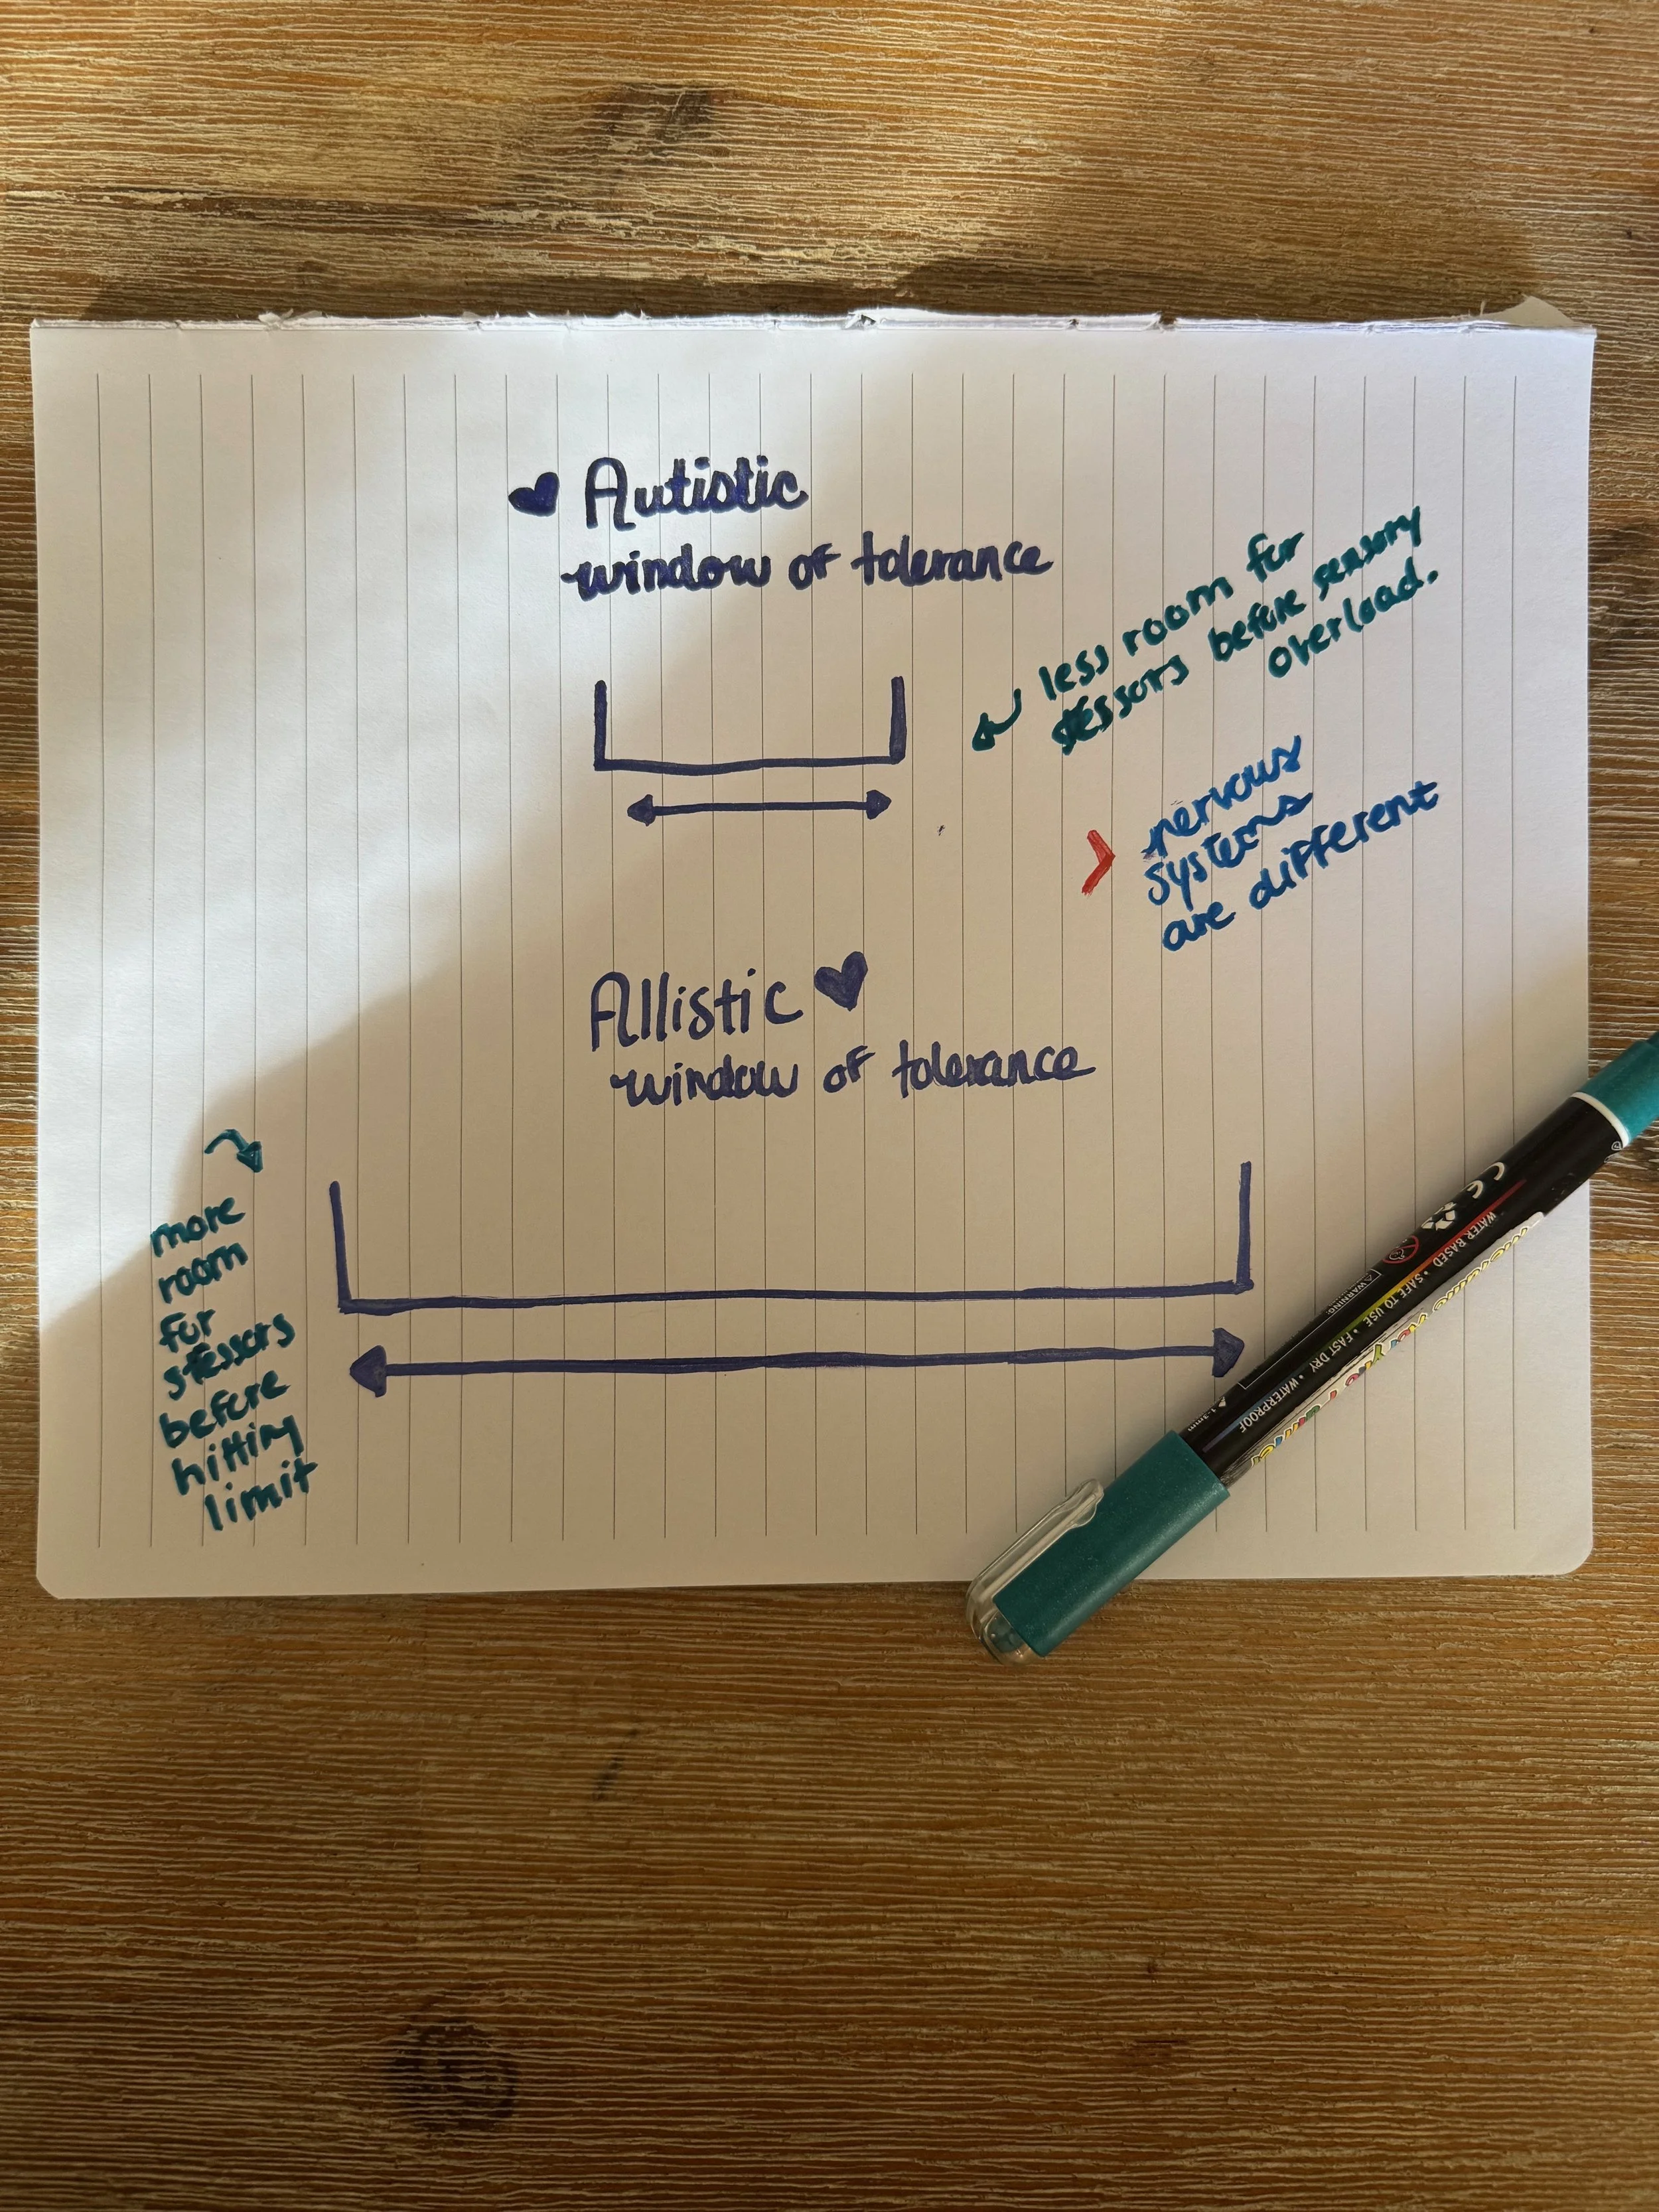 Autistic
window of tolerance
less room for
stessors before sensory
overload.
nervous
systems
are different
Allistic
window of tolerance
more
room
for
stessors
before
hitting
limit
CE
WATER BASED • SAFE TO USE • FAST DRY • WATERPROOF
WARNING: